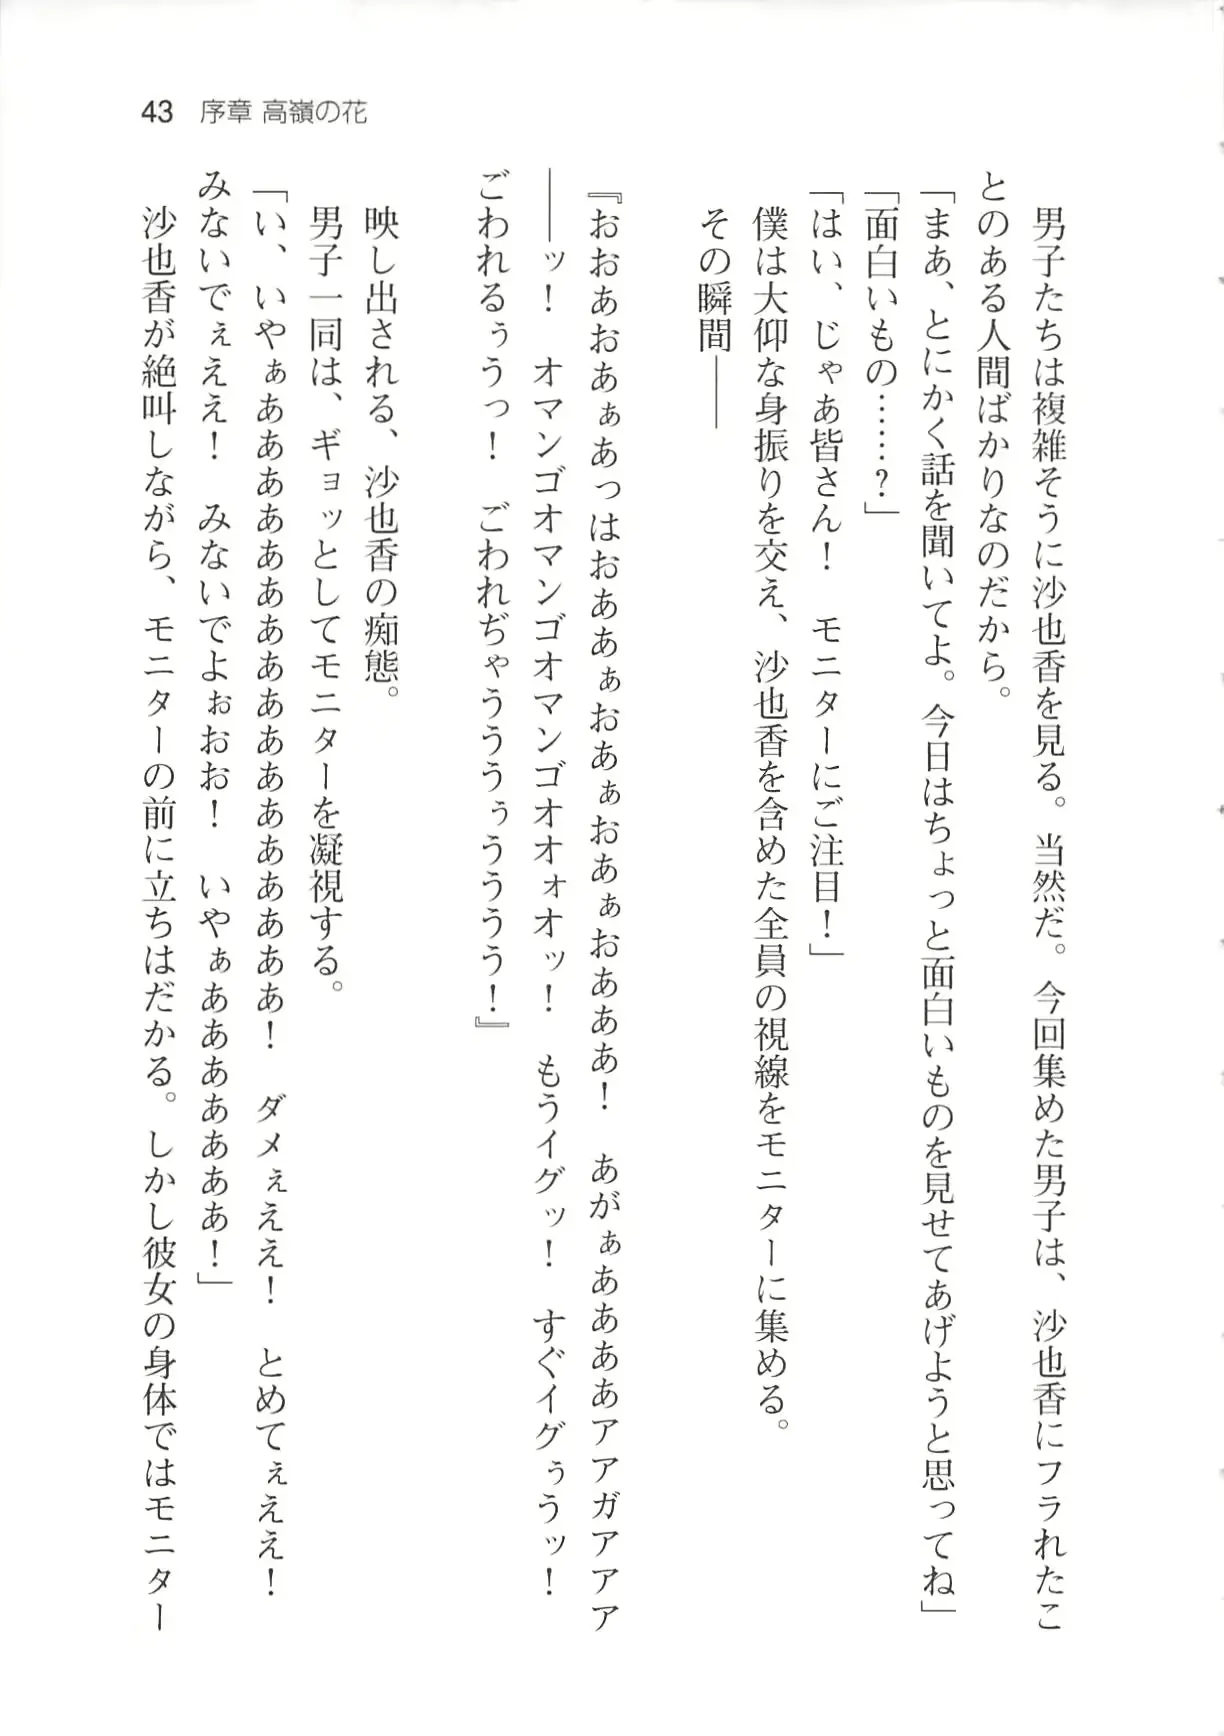 43 序章 高嶺の花
男子たちは複雑そうに沙也香を見る。当然だ。今回集めた男子は、沙也香にフラれたこ
とのある人間ばかりなのだから。
「まあ、とにかく話を聞いてよ。今日はちょっと面白いものを見せてあげようと思ってね」
「面白いもの……?」
「はい、じゃあ皆さん! モニターにご注目!」
僕は大仰な身振りを交え、沙也香を含めた全員の視線をモニターに集める。
その瞬間――
『おおあおあぁあっはおああぁおあぁおあぁおあああ! あがぁああああアアガアアア
――ッ! オマンゴオマンゴオマンゴオオォオッ! もうイグッ! すぐイグぅうッ!
ごわれるぅうっ! ごわれぢゃうううぅうううう!』
映し出される、沙也香の痴態。
男子一同は、ギョッとしてモニターを凝視する。
「い、いやぁああああああああああああああああああ! ダメぇええ! とめてぇええ!
みないでぇええ! みないでよぉおお! いやぁあああああああ!」
沙也香が絶叫しながら、モニターの前に立ちはだかる。しかし彼女の身体ではモニター